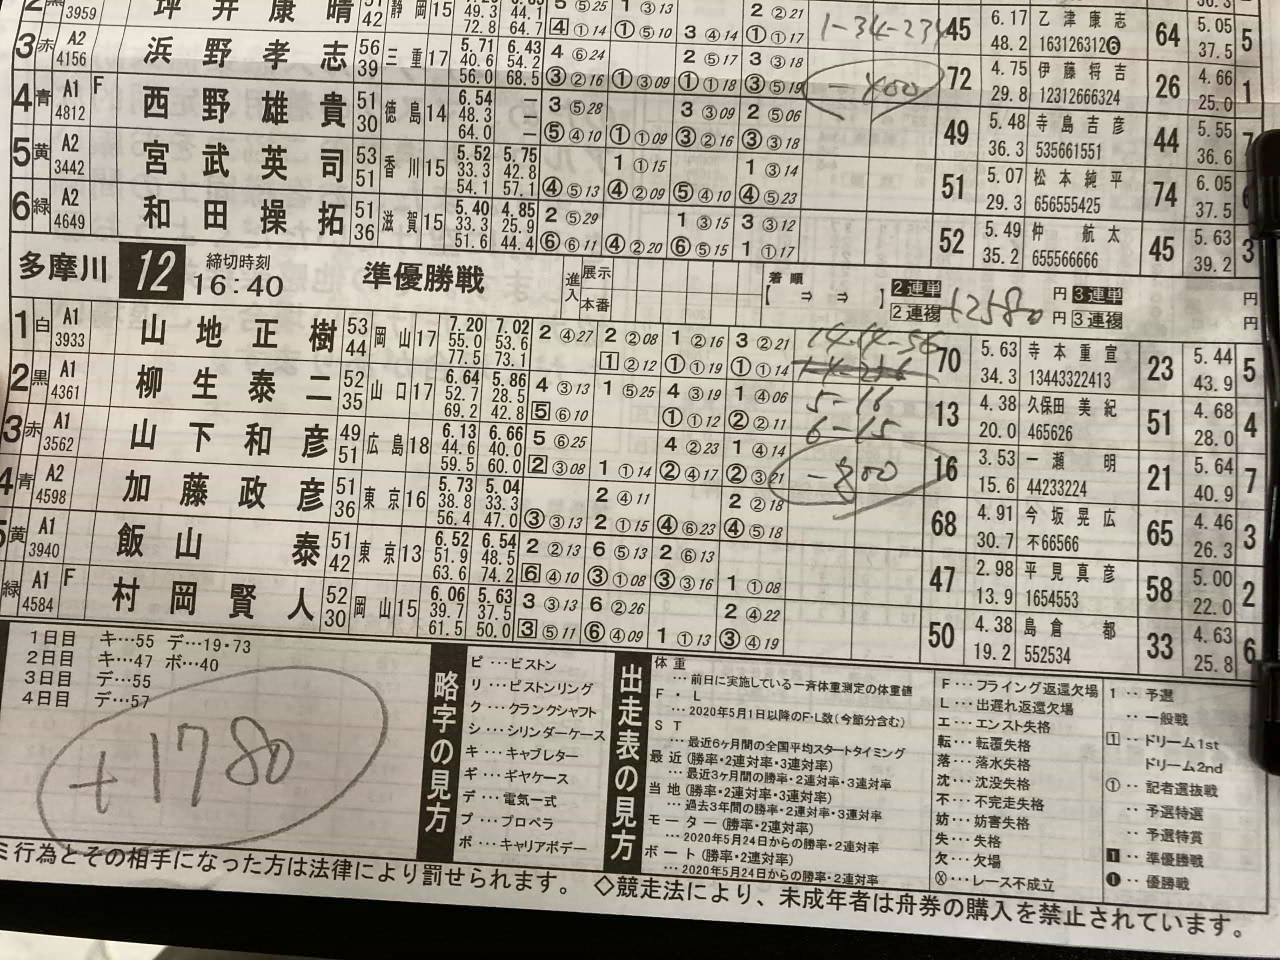 3959 坪井康晴 42 静岡 15 49.3 72.8 44.1 64.7 45 6.17 48.2 乙津康志 163126312 64 5.05 37.5 5
3 赤 A2 4156 浜野孝志 56 39 三重 17 5.71 40.6 56.0 6.43 54.2 68.5 72 4.75 29.8 伊藤将吉 12312666324 26 4.66 25.0 1
4 青 A1 4812 F 西野雄貴 51 30 徳島 14 6.54 48.3 64.0 — — — 49 5.48 36.3 寺島吉彦 535661551 44 5.55 36.6 7
5 黄 A2 3442 宮武英司 53 51 香川 15 5.52 33.3 54.1 5.75 42.8 57.1 51 5.07 29.3 松本純平 656555425 74 6.05 37.5
6 緑 A2 4649 和田操拓 51 36 滋賀 15 5.40 33.3 51.6 4.85 25.9 44.4 52 5.49 35.2 仲航太 655566666 45 5.63 39.2 3
1-34-234
-400
多摩川 12 締切時刻 16:40 準優勝戦 進入 展示 本番 着順 【 ⇒ ⇒ 】 2連単 円 3連単 円
2連複 +2580 円 3連複 円
1 白 A1 3933 山地正樹 53 44 岡山 17 7.20 55.0 77.5 7.02 53.6 73.1 2 ④27 2 ②08 1 ②16 3 ②21 1 ②12 ① ①19 ① ①14 70 5.63 34.3 寺本重宣 13443322413 23 5.44 43.9 5
2 黒 A1 4361 柳生泰二 52 35 山口 17 6.64 52.7 69.2 5.86 28.5 42.8 4 ③13 1 ⑤25 4 ③19 1 ④06 5 ⑥10 ① ①12 ② ②11 13 4.38 20.0 久保田美紀 465626 51 4.68 28.0 4
3 赤 A1 3562 山下和彦 49 51 広島 18 6.13 44.6 59.5 6.66 40.0 60.0 5 ⑥25 4 ②23 1 ④14 2 ③08 1 ①14 ② ④17 ② ③21 16 3.53 15.6 一瀬明 44233224 21 5.64 40.9 7
4 青 A2 4598 加藤政彦 51 36 東京 16 5.73 38.8 56.4 5.04 33.3 47.0 2 ④11 2 ②18 ③ ③13 2 ①15 ④ ⑥23 ④ ⑤18 68 4.91 30.7 今坂晃広 不66566 65 4.46 26.3 3
5 黄 A1 3940 飯山泰 51 42 東京 13 6.52 51.9 63.6 6.54 48.5 74.2 2 ②13 6 ⑤13 2 ⑥13 6 ④10 ③ ①08 ③ ③16 1 ①08 47 2.98 13.9 平見真彦 1654553 58 5.00 22.0 2
緑 A1 4584 F 村岡賢人 52 30 岡山 15 6.06 39.7 61.5 5.63 37.5 50.0 3 ③13 6 ②26 2 ④22 3 ⑤11 ⑥ ④09 1 ①13 ③ ④19 50 4.38 19.2 島倉都 552534 33 4.63 25.8 6
14-14-56
5-16
6-15
-800
1日目 キ…55 デ…19・73
2日目 キ…47 ボ…40
3日目 デ…55
4日目 デ…57
+1780
略字の見方
ピ…ピストン
リ…ピストンリング
ク…クランクシャフト
シ…シリンダーケース
キ…キャブレター
ギ…ギヤケース
デ…電気一式
プ…プロペラ
ボ…キャリアボデー
出走表の見方
体重
…前日に実施している一斉体重測定の体重値
F・L
…2020年5月1日以降のF・L数(今節分含む)
ST
…最近6ヶ月間の全国平均スタートタイミング
最近(勝率・2連対率・3連対率)
…最近3ヶ月間の勝率・2連対率・3連対率
当地(勝率・2連対率・3連対率)
…過去3年間の勝率・2連対率・3連対率
モーター(勝率・2連対率)
…2020年5月24日からの勝率・2連対率
ボート(勝率・2連対率)
…2020年5月24日からの勝率・2連対率
F…フライング返還欠場
L…出遅れ返還欠場
エ…エンスト失格
転…転覆失格
落…落水失格
沈…沈没失格
不…不完走失格
妨…妨害失格
失…失格
欠…欠場
Ⓧ…レース不成立
1‥予選
‥一般戦
1‥ドリーム1st
ドリーム2nd
①‥記者選抜戦
‥予選特選
‥予選特賞
1‥準優勝戦
❶‥優勝戦
ミ行為とその相手になった方は法律により罰せられます。 ◇競走法により、未成年者は舟券の購入を禁止されています。